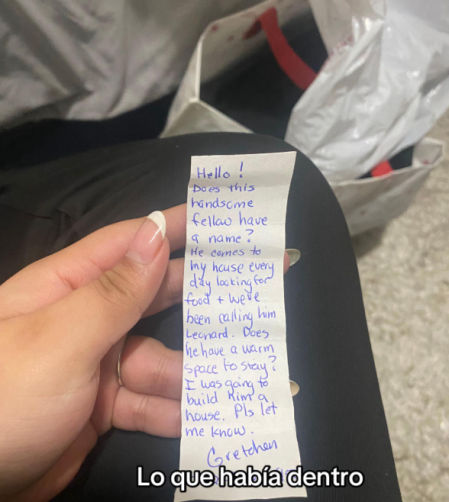 Hello!
Does this
handsome
fellow have
a name?
He comes to
my house every
day looking for
food + we've
been calling him
Leonard. Does
he have a warm
space to stay?
I was going to
build him a
house. Pls let
me know.
Gretchen
Lo que había dentro